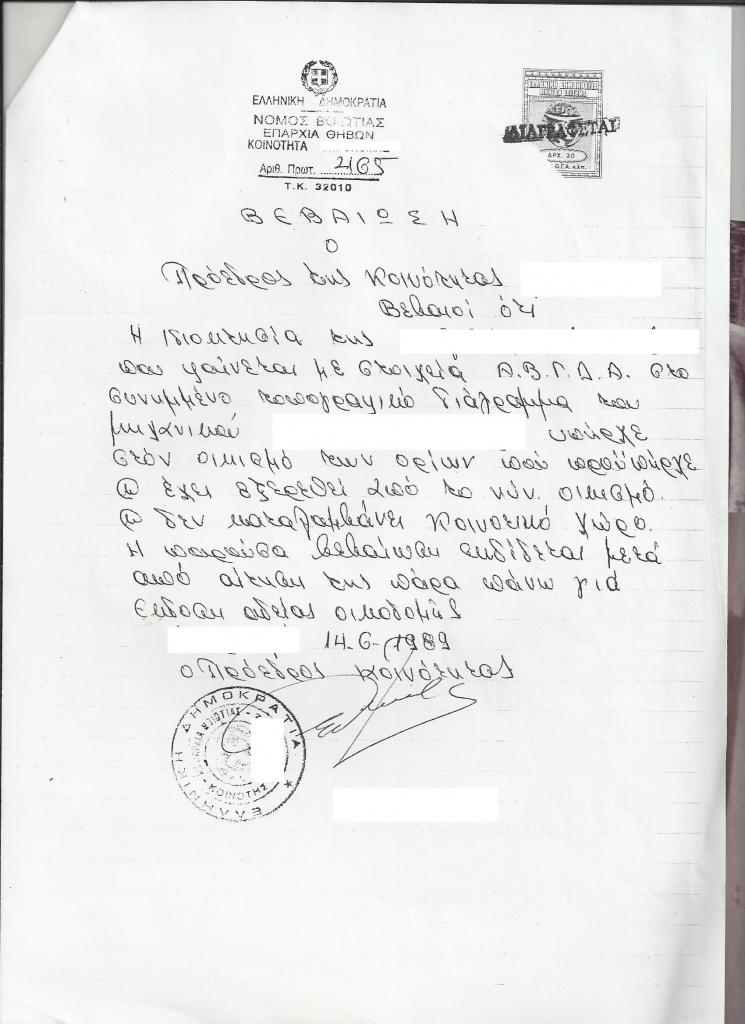 ΕΛΛΗΝΙΚΗ ΔΗΜΟΚΡΑΤΙΑ
ΝΟΜΟΣ ΒΟΙΩΤΙΑΣ
ΕΠΑΡΧΙΑ ΘΗΒΩΝ
ΚΟΙΝΟΤΗΤΑ
Αριθ. Πρωτ. 2165
Τ.Κ. 32010
ΔΙΑΓΡΑΦΕΤΑΙ
ΔΡΧ. 20
Ο.Γ.Α. κλπ.
ΒΕΒΑΙΩΣΗ
Ο
Πρόεδρος της Κοινότητας
Βεβαιοί ότι
Η ιδιοκτησία της
που φαίνεται με στοιχεία Α.Β.Γ.Δ.Α. στο
συνημμένο τοπογραφικό διάγραμμα του
μηχανικού υπήρχε
στόν οικισμό των ορίων πού προϋπήρχε
έχει εξερεθεί από το νύν. οικισμό.
δεν καταλαμβάνει Κοινοτικό χώρο.
Η παρούσα βεβαίωση εκδίδεται μετά
από αίτηση της πάρα πάνω γιά
έκδοση αδείας οικοδομής
14-6-1989
ο Πρόεδρος Κοινότητας
ΕΛΛΗΝΙΚΗ ΔΗΜΟΚΡΑΤΙΑ
ΚΟΙΝΟΤΗΣ